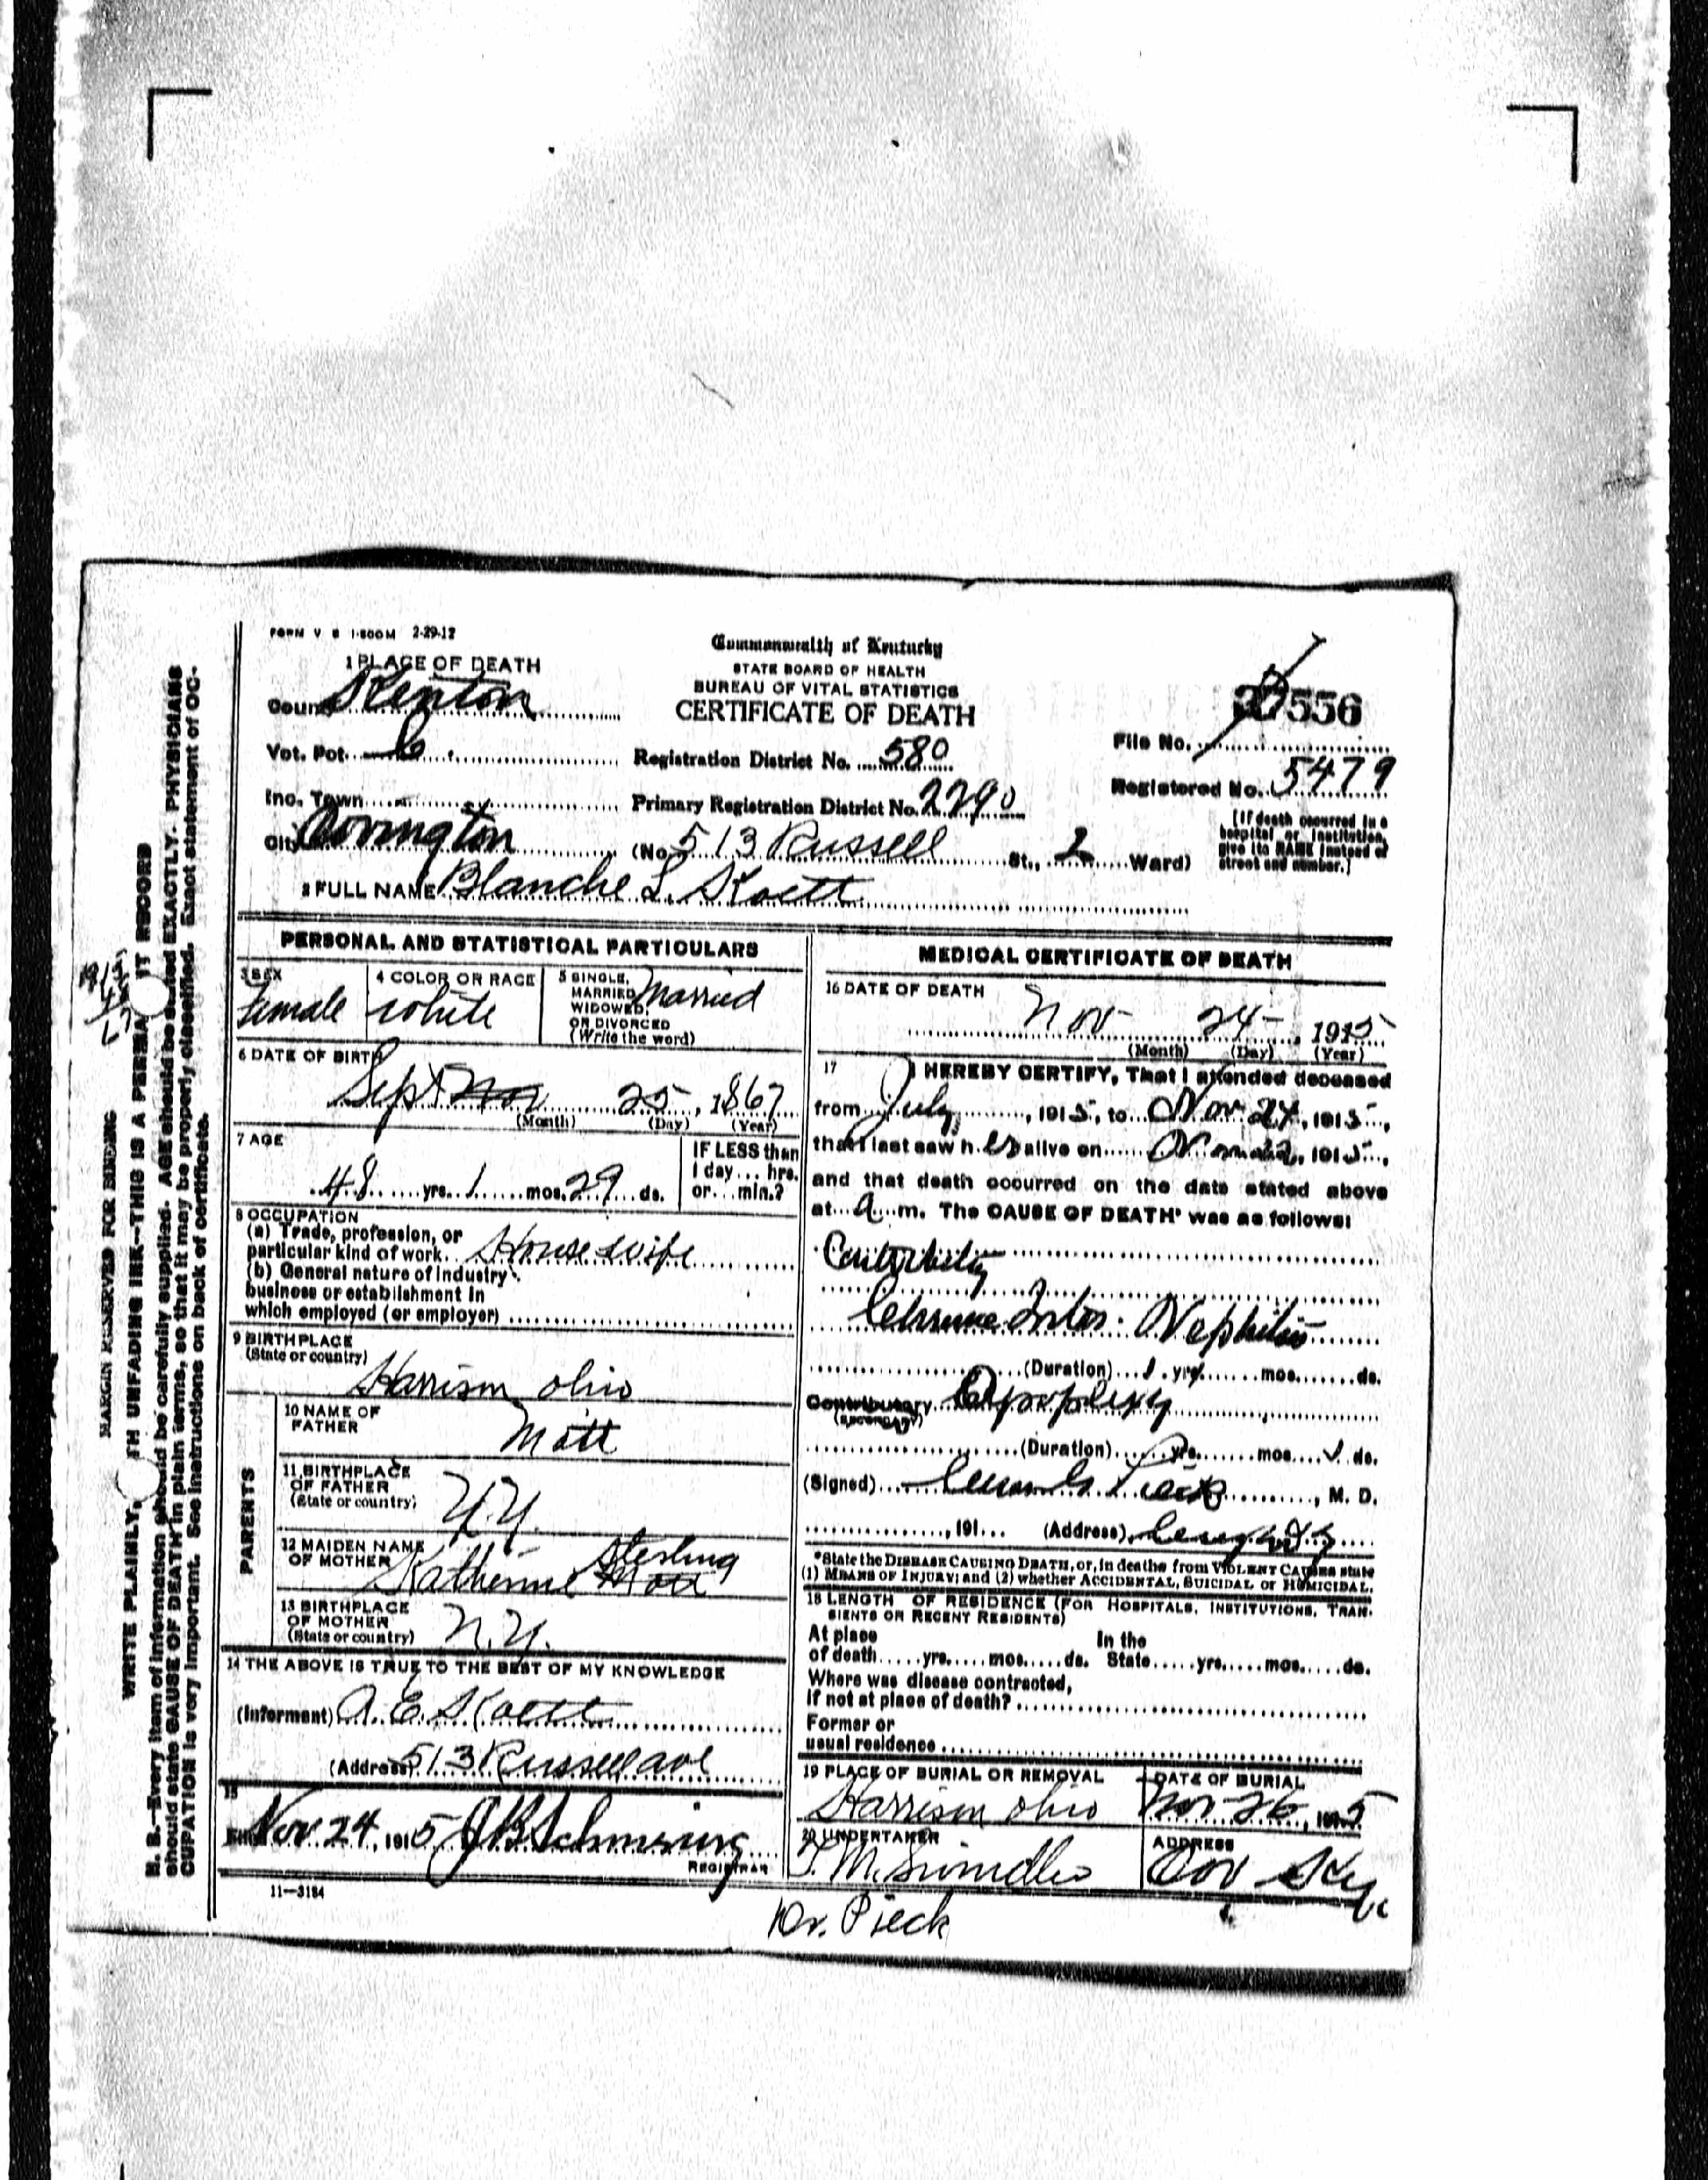 FORM V S 1-500M 2-29-12
Commonwealth of Kentucky
STATE BOARD OF HEALTH
BUREAU OF VITAL STATISTICS
CERTIFICATE OF DEATH
1 PLACE OF DEATH
County Kenton
Vot. Pct. 6
Inc. Town
City Covington
Registration District No. 580
Primary Registration District No. 2290
(No. 513 Russell St., 2 Ward)
556
File No.
Registered No. 5479
[If death occurred in a
hospital or institution,
give its NAME instead of
street and number.]
2 FULL NAME Blanche L. Koett
PERSONAL AND STATISTICAL PARTICULARS
3 SEX
female
4 COLOR OR RACE
white
5 SINGLE,
MARRIED,
WIDOWED,
OR DIVORCED
(Write the word)
Married
6 DATE OF BIRTH
Sept Nov 25, 1867
(Month) (Day) (Year)
7 AGE
48 yrs. 1 mos. 29 ds.
IF LESS than
1 day... hrs.
or... min.?
8 OCCUPATION
(a) Trade, profession, or
particular kind of work. Housewife
(b) General nature of industry
business or establishment in
which employed (or employer)
9 BIRTHPLACE
(State or country)
Harrison Ohio
PARENTS
10 NAME OF
FATHER
Mott
11 BIRTHPLACE
OF FATHER
(State or country)
N.Y.
12 MAIDEN NAME
OF MOTHER
Katherine Mott Sterling
13 BIRTHPLACE
OF MOTHER
(State or country)
N.Y.
14 THE ABOVE IS TRUE TO THE BEST OF MY KNOWLEDGE
(Informant) A. E. Koett
(Address) 513 Russell ave
15
Nov 24, 1915
REGISTRAR
11—3184
MEDICAL CERTIFICATE OF DEATH
16 DATE OF DEATH
Nov 24, 1915
(Month) (Day) (Year)
17 I HEREBY CERTIFY, That I attended deceased
from July, 1915, to Nov 24, 1915,
that I last saw her alive on Nov 22, 1915,
and that death occurred on the date stated above
at a m. The CAUSE OF DEATH* was as follows:
Nephritis
(Duration) 1 yrs. mos. ds.
Contributory Apoplexy
(SECONDARY)
(Duration) yrs. mos. 1 ds.
(Signed) M. D.
, 191... (Address)
*State the DISEASE CAUSING DEATH, or, in deaths from VIOLENT CAUSES state
(1) MEANS OF INJURY; and (2) whether ACCIDENTAL, SUICIDAL or HOMICIDAL.
18 LENGTH OF RESIDENCE (FOR HOSPITALS, INSTITUTIONS, TRAN-
SIENTS OR RECENT RESIDENTS)
At place
of death.....yrs.....mos.....ds.
In the
State.....yrs.....mos.....ds.
Where was disease contracted,
If not at place of death?
Former or
usual residence
19 PLACE OF BURIAL OR REMOVAL
Harrison Ohio
DATE OF BURIAL
Nov 26, 1915
20 UNDERTAKER
ADDRESS
Cov Ky
Dr. Pieck
MARGIN RESERVED FOR BINDING
WRITE PLAINLY, WITH UNFADING INK—THIS IS A PERMANENT RECORD
N. B.—Every item of information should be carefully supplied. AGE should be stated EXACTLY. PHYSICIANS
should state CAUSE OF DEATH in plain terms, so that it may be properly classified. Exact statement of OC-
CUPATION is very important. See instructions on back of certificate.